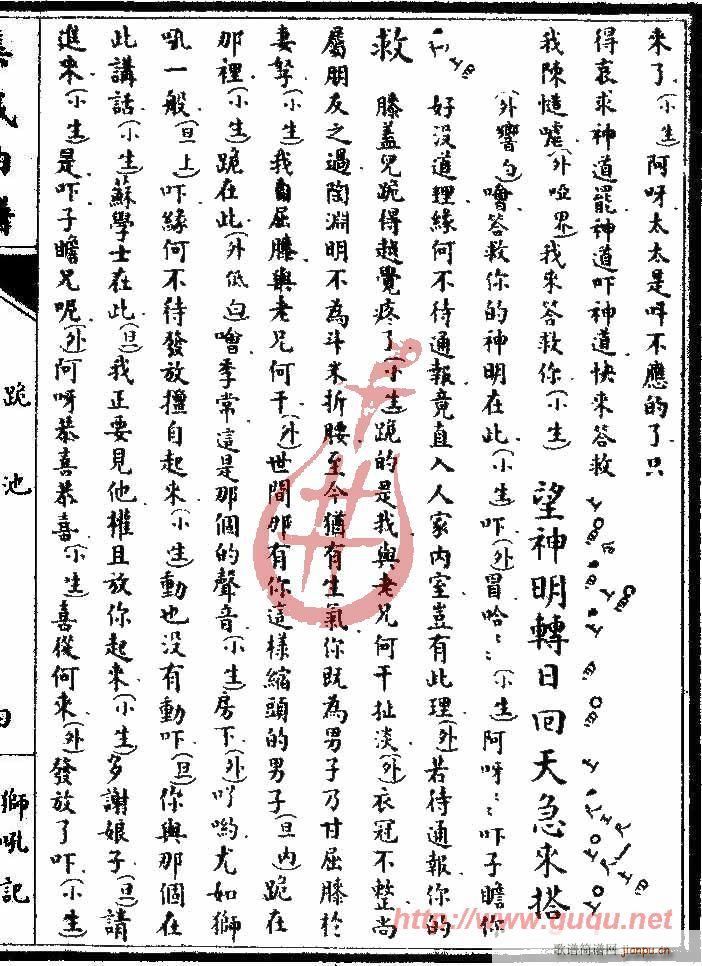 来了(小生)阿呀太太是呌不應的了只
得哀求神道罷神道吓神道快来答救
我陳慥嘘(外哑界)我来答救你(小生)望神明轉日囘天急來搭
(外響白)噲答救你的神明在此(小生)吓(外)冒哈〻〻(小生)阿呀〻〻吓子瞻你
好没道理緣何不待通報竟直入人家内室豈有此理(外)若待通報你的
救 膝盖兒跪得越覺疼了(小生)跪的是我與老兄何干扯淡(外)衣冠不整尚
屬朋友之過陶淵明不為斗米折腰至今猶有生氣你既為男子乃甘屈膝於
妻孥(小生)我自屈膝與老兄何干(外)世間那有你這樣縮頭的男子(旦内)跪在
那裡(小生)跪在此(外低白)噲季常這是那個的聲音(小生)房下(外)吖喲尤如獅
吼一般(旦上)吓緣何不待發放擅自起来(小生)動也没有動吓(旦)你與那個在
此講話(小生)蘇學士在此(旦)我正要見他權且放你起来(小生)多謝娘子(旦)請
進来(小生)是吓子瞻兄呢(外)阿呀恭喜恭喜(小生)喜從何来(外)發放了吓(小生)
集成曲譜
跪池
獅吼記
http://www.ququ.net
歌谱简谱网 jianpu.cn